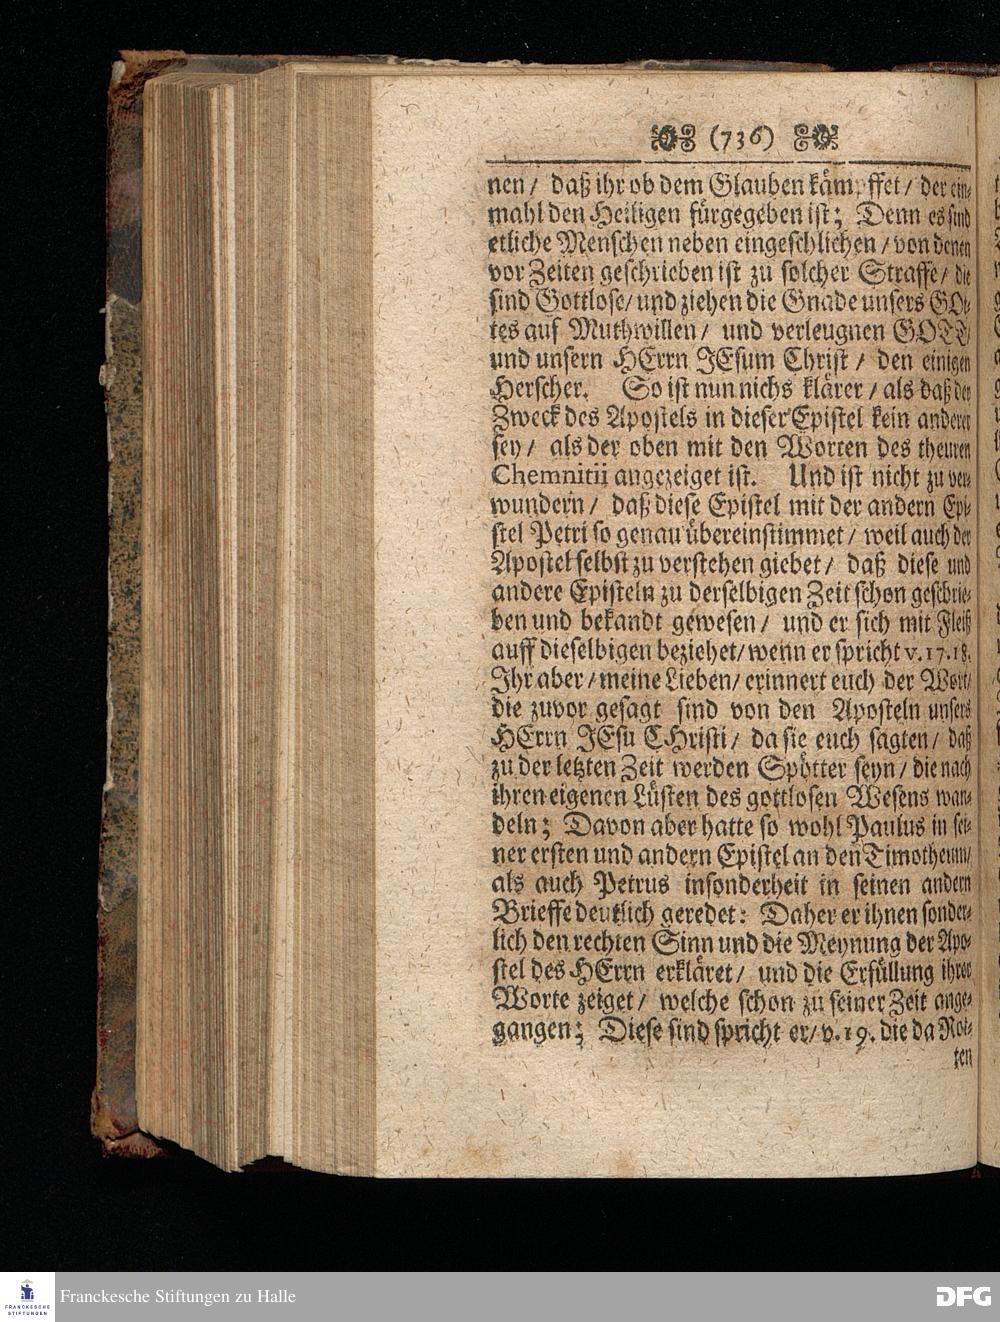 (736)
nen / daß ihr ob dem Glauben kämpffet / der ein-
mahl den Heiligen fürgegeben ist; Denn es sind
etliche Menschen neben eingeschlichen / von denen
vor Zeiten geschrieben ist zu solcher Straffe / die
sind Gottlose / und ziehen die Gnade unsers GOt-
tes auf Muthwillen / und verleugnen GOTT
und unsern HErrn JEsum Christ / den einigen
Herscher. So ist nun nichs klärer / als daß der
Zweck des Apostels in dieser Epistel kein anderer
sey / als der oben mit den Worten des theuren
Chemnitii angezeiget ist. Und ist nicht zu ver-
wundern / daß diese Epistel mit der andern Epi-
stel Petri so genau übereinstimmet / weil auch der
Apostel selbst zu verstehen giebet / daß diese und
andere Episteln zu derselbigen Zeit schon geschrie-
ben und bekandt gewesen / und er sich mit Fleiß
auff dieselbigen beziehet / wenn er spricht v. 17. 18.
Ihr aber / meine Lieben / erinnert euch der Wort /
die zuvor gesagt sind von den Aposteln unsers
HErrn JEsu CHristi / da sie euch sagten / daß
zu der letzten Zeit werden Spötter seyn / die nach
ihren eigenen Lüsten des gottlosen Wesens wan-
deln; Davon aber hatte so wohl Paulus in sei-
ner ersten und andern Epistel an den Timotheum /
als auch Petrus insonderheit in seinen andern
Brieffe deutlich geredet: Daher er ihnen sonder-
lich den rechten Sinn und die Meynung der Apo-
stel des HErrn erkläret / und die Erfüllung ihrer
Worte zeiget / welche schon zu seiner Zeit ange-
gangen; Diese sind spricht er / v. 19. die da Rot-
ten
FRANCKESCHE
STIFTUNGEN
Franckesche Stiftungen zu Halle
DFG